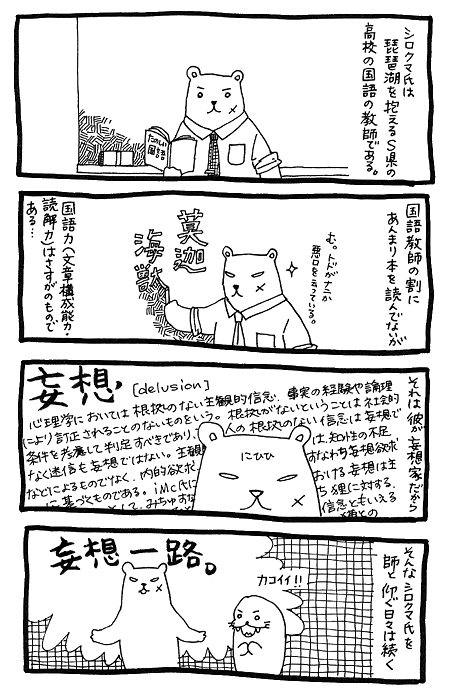 シロクマ氏は
琵琶湖を抱えるS県の
高校の国語の教師である。
たのしい
国語
国語教師の割に
あんまり本を読んでないが
む。トドがナニか
悪口を言っている。
莫迦
海獣
国語力(文章構成能力・
読解力)はさすがのもので
ある…
それは彼が妄想家だから
妄想 [delusion]
心理学においては根拠のない主観的信念、事実の経験や論理
により訂正されることのないものをいう。根拠がないということは社会的
条件を考慮して判定すべきであり、
人の根拠のない信念は妄想で
なく迷信も妄想ではない。主観
は、知性の不足
などによるものでなく、内的欲求
すなわち妄想欲求
に基づくものである。iMc氏に
おける妄想は主
ち狸に対する、
して、みちゅすな
信念ともいえる
にひひ
そんなシロクマ氏を
師と仰ぐ日々は続く
妄想一路。
カコイイ!!